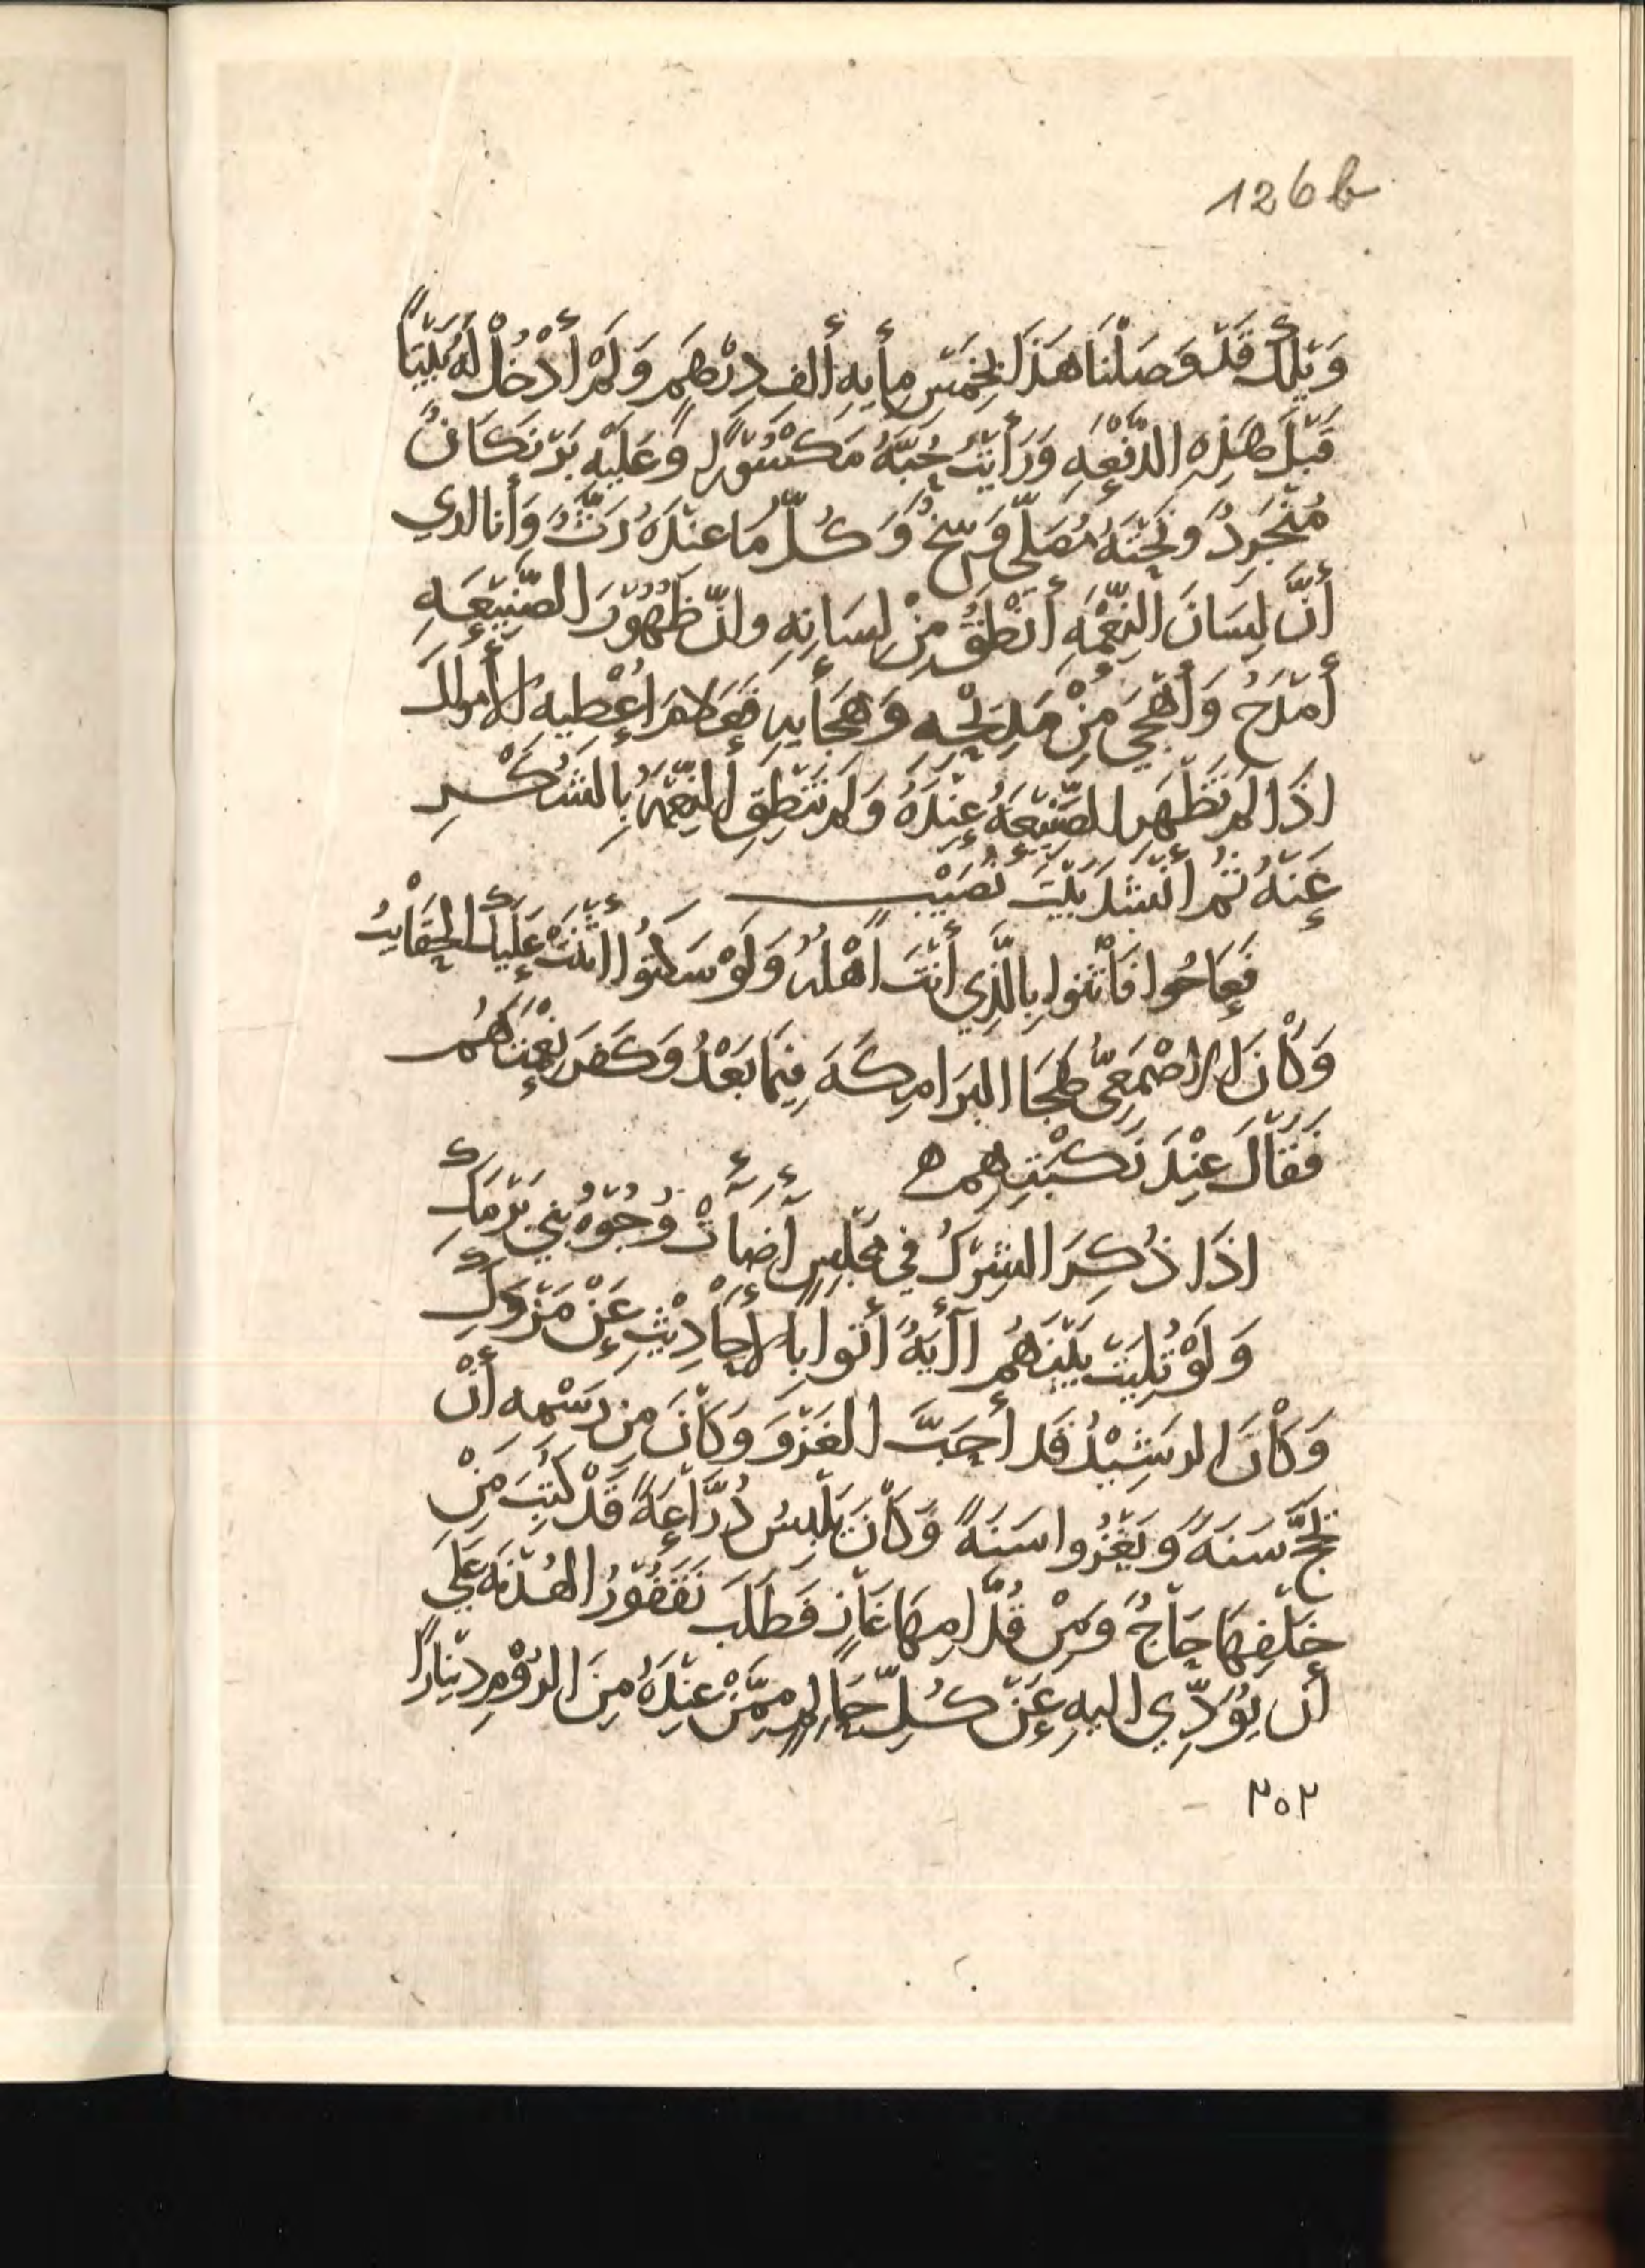 126b
وَيْلَكَ قَدْ وَصَلْنَا هَذَا بِخَمْسِ مِأيةِ ألفِ دِرْهَمٍ وَلَمْ أَدْخُلْ لَهُ بَيْتاً
قَبْلَ هَذِهِ الدَّفْعَهِ وَرَأَيْتُ حُبَّهُ مَكْسُوْرًا وَعَلَيْهِ بَرْنَكَانٌ
مُنْجَرِدٌ وَتَحْتَهُ مُصَلَّى وَسِخٌ وَكُلُّ مَا عِنْدَهُ رَثٌّ وَأَنا اري
أَنَّ لِسَانَ النِّعْمَهِ أَنْطَقُ مِنْ لِسَانِهِ وانَّ ظُهُوْرَ الصَّنِيْعَهِ
أَمْدَحُ وَأَهْجَى مِنْ مَدِيْحِهِ وَهِجَأيهِ فَعَلَامَ اعْطِيهِ الأموالَ
اذَا لَمْ تَظْهَرِ الصَّنِيْعَهُ عِنْدَهُ وَلَمْ تَنْطِقِ النِّعْمَهُ بِالشُّكْرِ
عَنْهُ ثُمَّ أَنْشَدَ بَيْتَ نُصَيْبٍ
فَعَاجُوا فَأَثْنَوا بِالَّذِي أَنْتَ أَهْلُهُ وَلَوْ سَكَتُوا اثْنَتْ عَلَيْكَ الحَقَايِبُ
وَكَانَ الاصْمَعِيُّ هَجَا البَرَامِكَهَ فِيْمَا بَعْدُ وَكَفَرَ نِعْمَتَهُم
فَقَالَ عِنْدَ نَكْبَتِهِم ه
اذَا ذُكِرَ الشِّرْكُ فِي مَجْلِسٍ أَضَأتْ وُجُوْهُ بَنِي بَرْمَكِ
وَلَوْ تُلِيَتْ بَيْنَهُمْ اآيَةٌ أَتَوا بِالأَحَادِيْثِ عَنْ مَزْوَكِ
وَكَانَ الرَشِيْدُ قَد أَحَبَّ الغَزْوَ وَكَانَ مِن رَسْمِهِ أَنْ
يَحُجَّ سَنَهً وَيَغْزُوا سَنَهً وَكَانَ يَلْبِسُ دُرَّاعَهً قَدْ كُتِبَ مِنْ
خَلْفِهَا حَاجٌ وَمِنْ قُدَّامِهَا غَازٍ فَطَلَبَ نَقْفُوْرُ الهُدْنَهَ عَلَى
أَن يُؤَدِّي اليهِ عَنْ كُلِّ حَالِمٍ مِمَّنْ عِنْدَهُ مِنَ الرُوْمِ دِيْنَارًا
٢٥٢